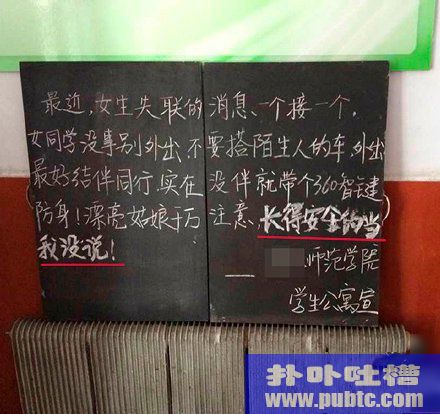 最近，女生失联的消息、一个接一个，
女同学没事别外出、不要搭陌生人的车，外出
最好结伴同行，实在没伴就带个360智键
防身！漂亮姑娘千万注意、长得安全的当
我没说！
师范学院
学生公寓宣
扑卟吐槽
www.pubtc.com